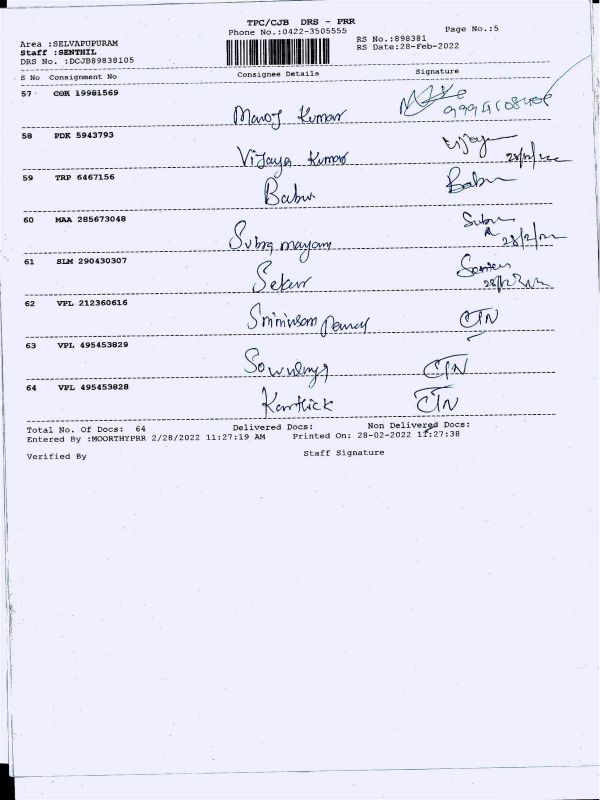 TPC/CJB DRS - PRR
Phone No.:0422-3505555 Page No.:5
Area :SELVAPUPURAM RS No.:898381
Staff :SENTHIL RS Date:28-Feb-2022
DRS No. :DCJB89838105
S No Consignment No Consignee Details Signature
57 COK 19981569 Manoj Kumar
58 PDK 5943793 Vijaya Kumar
59 TRP 6467156 Babu Babu
60 MAA 285673048 28/2/22
61 SLM 290430307 Sekar
62 VPL 212360616
63 VPL 495453829
64 VPL 495453828 Karthick
Total No. Of Docs: 64 Delivered Docs: Non Delivered Docs:
Entered By :MOORTHYPRR 2/28/2022 11:27:19 AM Printed On: 28-02-2022 11:27:38
Verified By Staff Signature